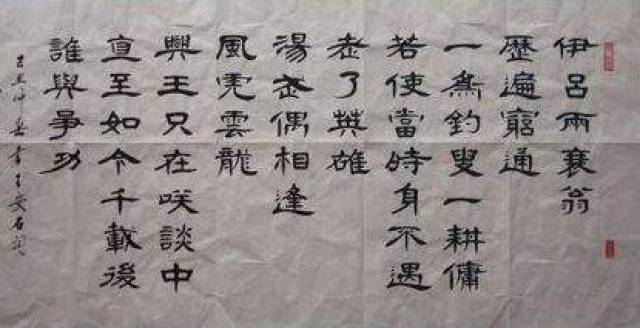 伊呂兩衰翁
歷遍窮通
一為釣叟一耕傭
若使當時身不遇
老了英雄
湯武偶相逢
風虎雲龍
興王只在咲談中
直至如今千載後
誰與爭功
己丑仲書王安石詞